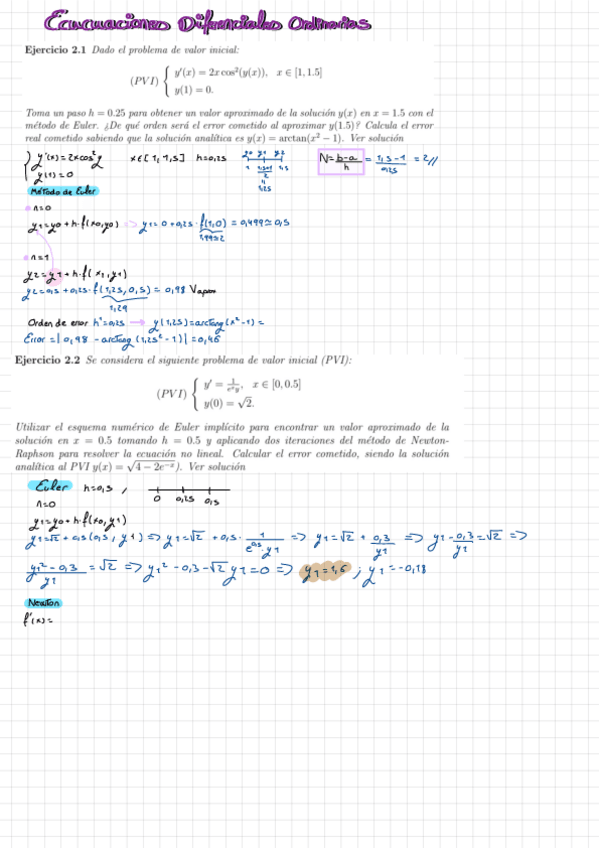 Ecucuaciones Difenciales Ordinarias
Ejercicio 2.1 Dado el problema de valor inicial:
(PVI) { y'(x) = 2x cos²(y(x)), x ∈ [1, 1.5]
y(1) = 0.
Toma un paso h = 0.25 para obtener un valor aproximado de la solución y(x) en x = 1.5 con el
método de Euler. ¿De qué orden será el error cometido al aproximar y(1.5)? Calcula el error
real cometido sabiendo que la solución analítica es y(x) = arctan(x² − 1). Ver solución
{ y'(x) = 2x cos²y x∈[1, 1,5] h=0,25 y0 y1 y2 N = b-a/h = 1,5-1/0,25 = 2//
y(1) = 0
1 1,5+1/2 1,5
1,25
Método de Euler
n=0
y1 = y0 + h·f(x0,y0) => y1 = 0 + 0,25 · f(1,0) = 0,499 ≃ 0,5
1,99≃2
n=1
y2 = y1 + h·f(x1,y1)
y2 = 0,5 + 0,25·f(1,25, 0,5) = 0,98 Vaprox
1,29
Orden de error h¹=0,25 → y(1,25) = arctang(x²-1) =
Error = | 0,98 - arctang(1,25²-1)| = 0,46
Ejercicio 2.2 Se considera el siguiente problema de valor inicial (PVI):
(PVI) { y' = 1/eˣy, x ∈ [0, 0.5]
y(0) = √2.
Utilizar el esquema numérico de Euler implícito para encontrar un valor aproximado de la
solución en x = 0.5 tomando h = 0.5 y aplicando dos iteraciones del método de Newton-
Raphson para resolver la ecuación no lineal. Calcular el error cometido, siendo la solución
analítica al PVI y(x) = √4 − 2e⁻ˣ). Ver solución
Euler h=0,5 , 0 0,25 0,5
n=0
y1 = y0 + h·f(x0,y1)
y1 = √2 + 0,5(0,5, y1) => y1 = √2 + 0,5 · 1/e^0,5·y1 => y1 = √2 + 0,3/y1 => y1 - 0,3/y1 = √2 =>
y1² - 0,3/y1 = √2 => y1² - 0,3 - √2 y1 = 0 => y1 = 1,6 ; y1 = -0,18
Newton
f'(x) =